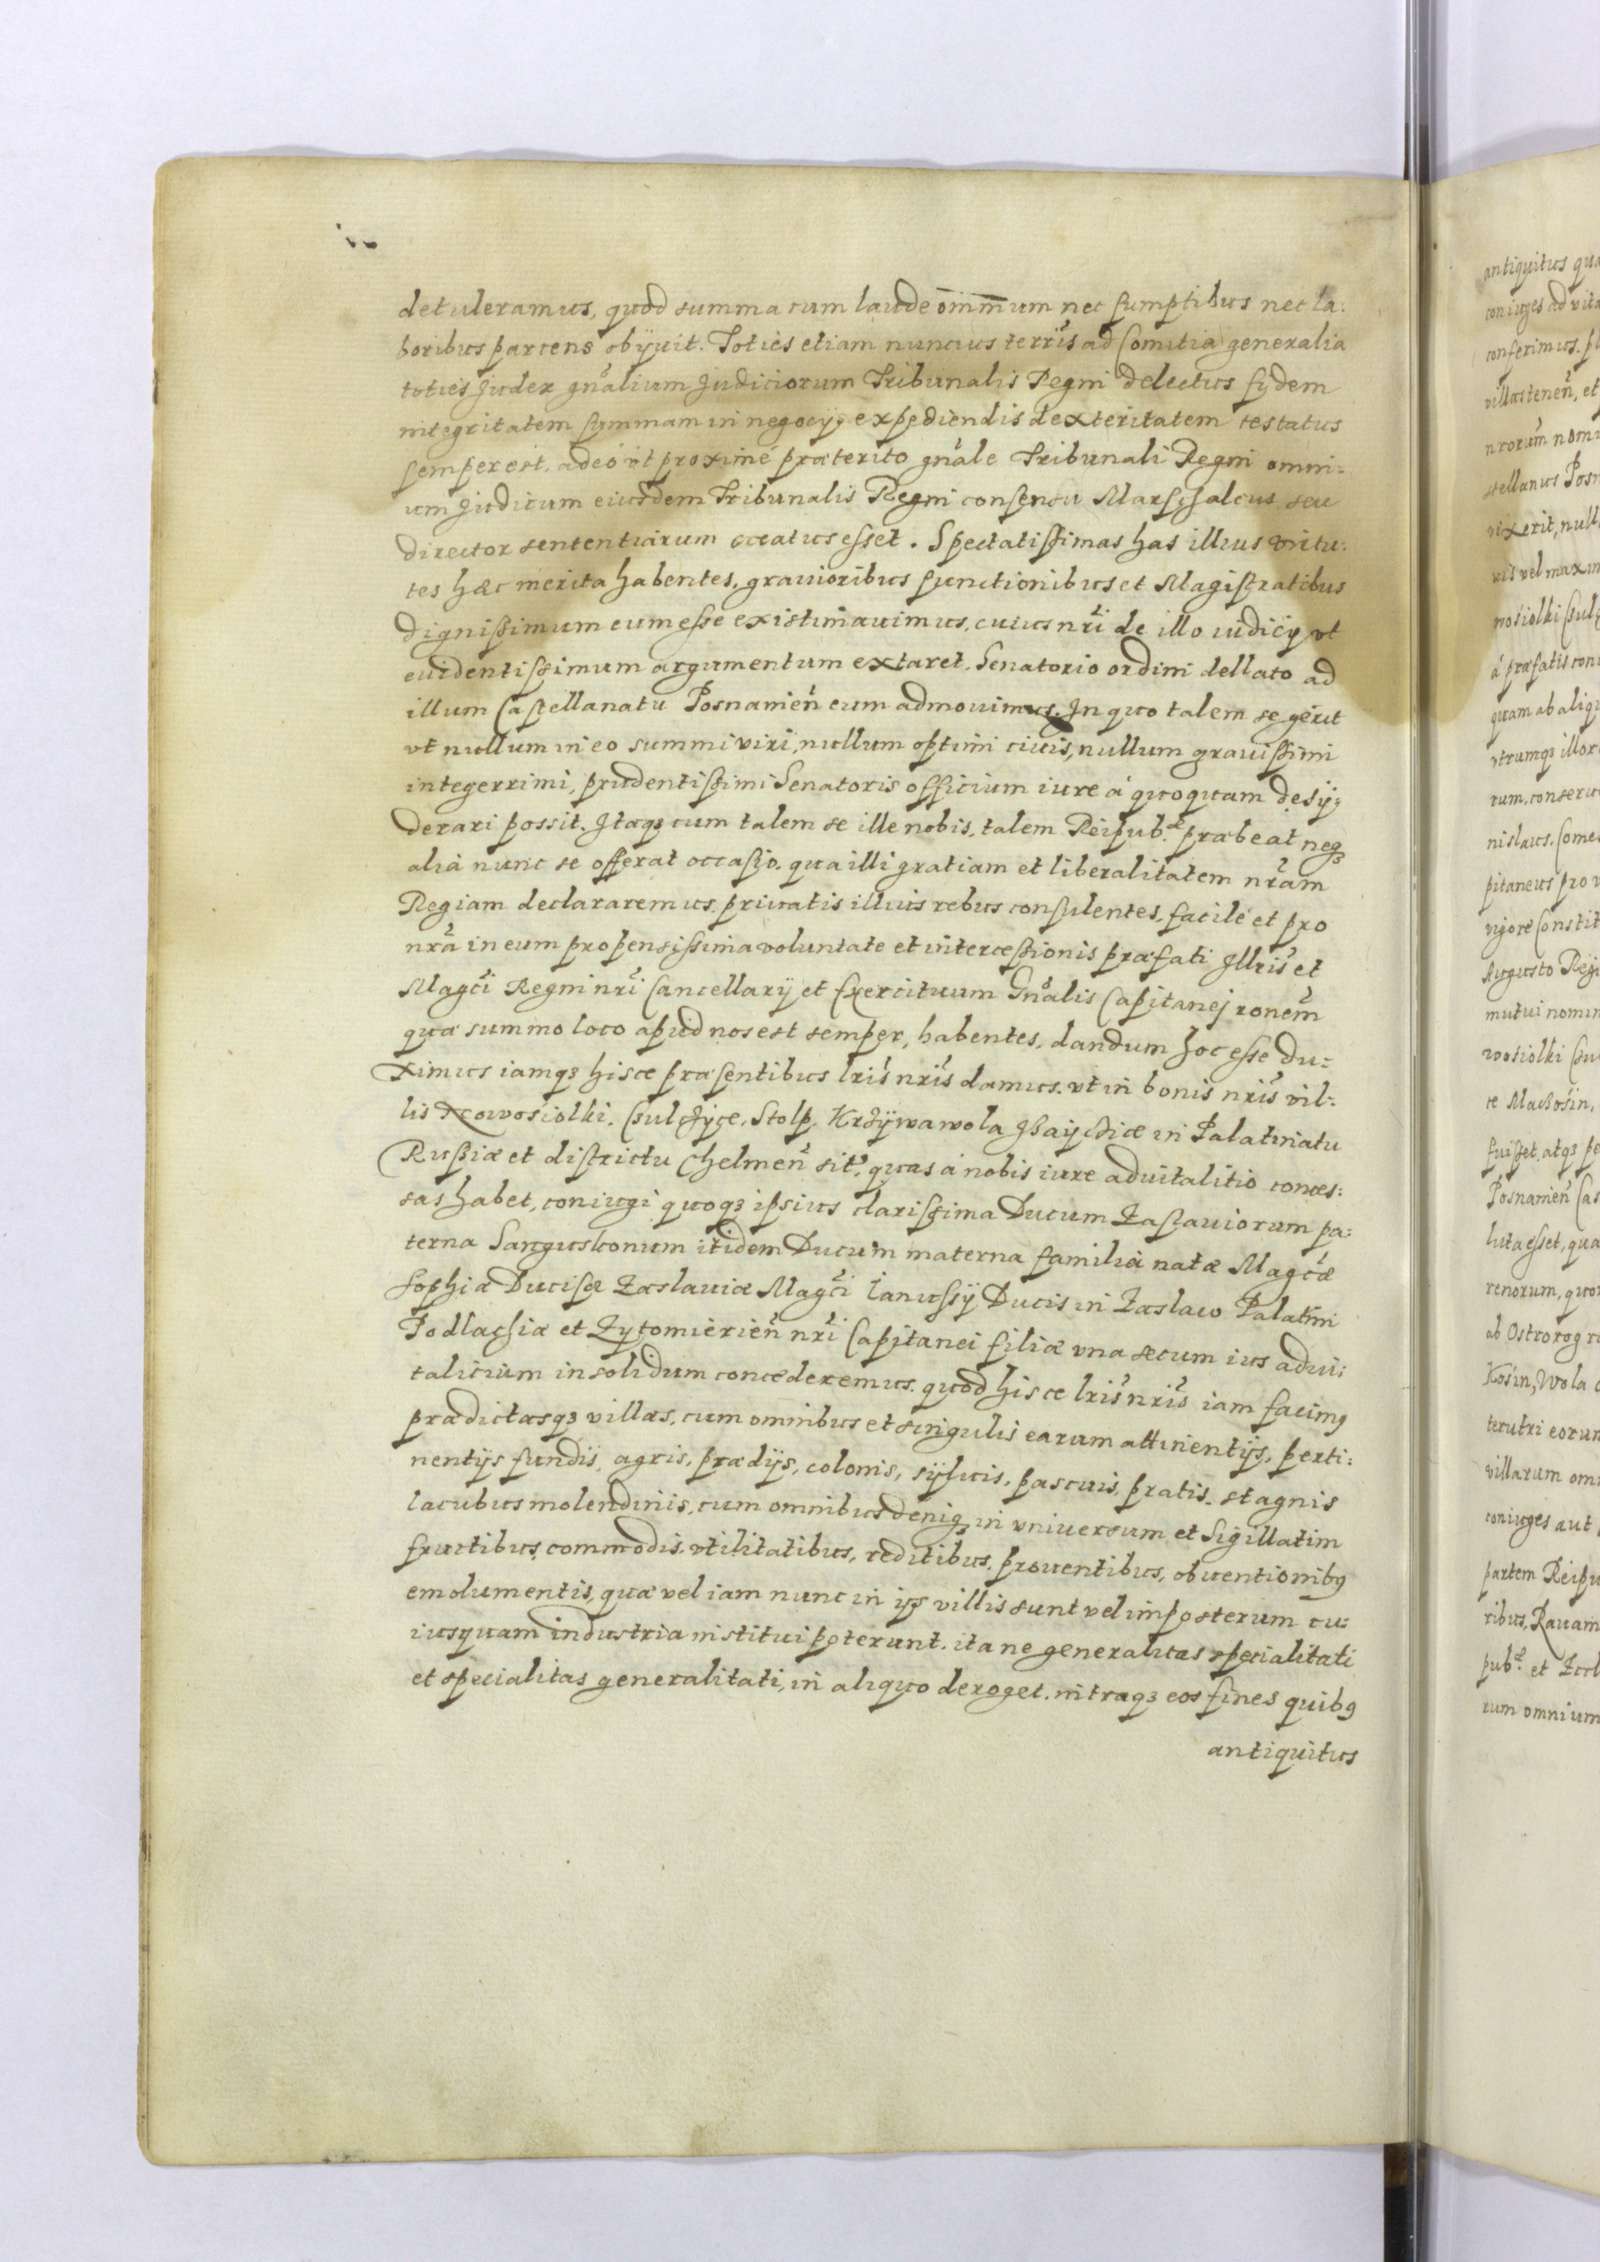 detuleramus, quod summa cum laude omnium nec sumptibus nec la:
boribus parcens obijuit. Toties etiam nuncius terris̃ ad Comitia generalia
toties Judex gñalium Judiciorum Tribunalis Regni delectus fydem
integritatem summam in negocys expediendis dexteritatem testatus
semper est, adeó vt proximé præterito gñale Tribunali Regni omni:
um Judicum eiusdem Tribunalis Regni consensu Marschalcus seu
director sententiarum creatus esset. Spectatissimas has illius virtu:
tes hæc merita habentes, grauioribus functionibus et Magistratibus
dignissimum eum esse existimauimus, cuius nr̃i de illo iudicij vt
euidentissimum argumentum extaret. Senatorio ordini dellato ad
illum Castellanatu Posnanieñ eum admouimus. In quo talem se gerit
vt nullum in eo summi viri, nullum optimi ciuis, nullum grauissimi
integerrimi, prudentissimi Senatoris officium iure á quoquam desy:
derari possit. Itaqȝ cum talem se ille nobis, talem Reipub.æ præbeat neqȝ
alia nunc se offerat occasio, qua illi gratiam et liberalitatem nr̃am
Regiam declararemus, priuatis illius rebus consulentes, facilé et pro
nr̃a in eum propensissima voluntate et intercessionis præfati Illris̃ et
Magc̃i Regni nr̃i Cancellarij et Exercituum Gñalis Capitanej roñem
quæ summo loco apud nos est semper, habentes, dandum hoc esse du:
ximus iamqȝ hisce præsentibus lris̃ nris̃ damus, vt in bonis nris̃ vil:
lis Nowosiolki, Culczyce, Stolp, Krzywawola Chaycdicæ in Palatinatu
Russiæ et districtu Chelmeñ sit̃, quas á nobis iure aduitalitio conces:
sas habet, coniugi quoqȝ ipsius clarissima Ducum Zaslauiorum pa:
terna Sanguskonum itidem Ducum materna familia natæ Magc̃æ
Sophiæ Ducissæ Zaslauiæ Magc̃i Ianussij Ducis in Zaslaw Palatini
Podlachiæ et Zytomirieñ nr̃i Capitanei filiæ vna secum ius adui:
talicium in solidum concederemus, quod hisce lris̃ nris̃ iam facimꝰ
prædictasqȝ villas, cum omnibus et singulis earum attinentijs, perti:
nentijs fundis, agris, prædijs, colonis, syluis, pascuis, pratis, stagnis
lacubus molendinis, cum omnibus deniqȝ in vniuersum et sigillatim
fructibus, commodis, vtilitatibus, reditibus, prouentibus, obuentionibꝰ
emolumentis, quæ vel iam nunc in ijs villis sunt vel imposterum cu:
iusquam industria institui poterunt. ita ne generalitas specialitati
et specialitas generalitati, in aliquo deroget. intraqȝ eos fines quibꝰ
antiquitus